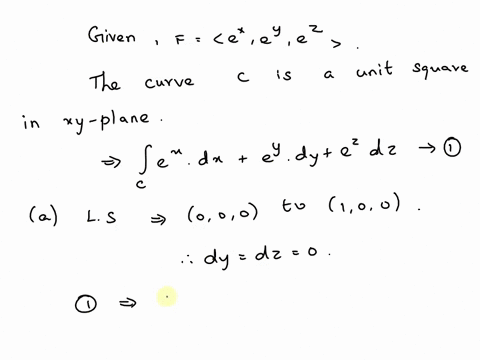 Given, F = <e^x, e^y, e^z>.
The curve C is a unit square
in xy-plane.
⇒ ∫_C e^x. dx + e^y. dy + e^z dz → ①
(a) L.S ⇒ (0,0,0) to (1,0,0).
∴ dy = dz = 0.
① ⇒